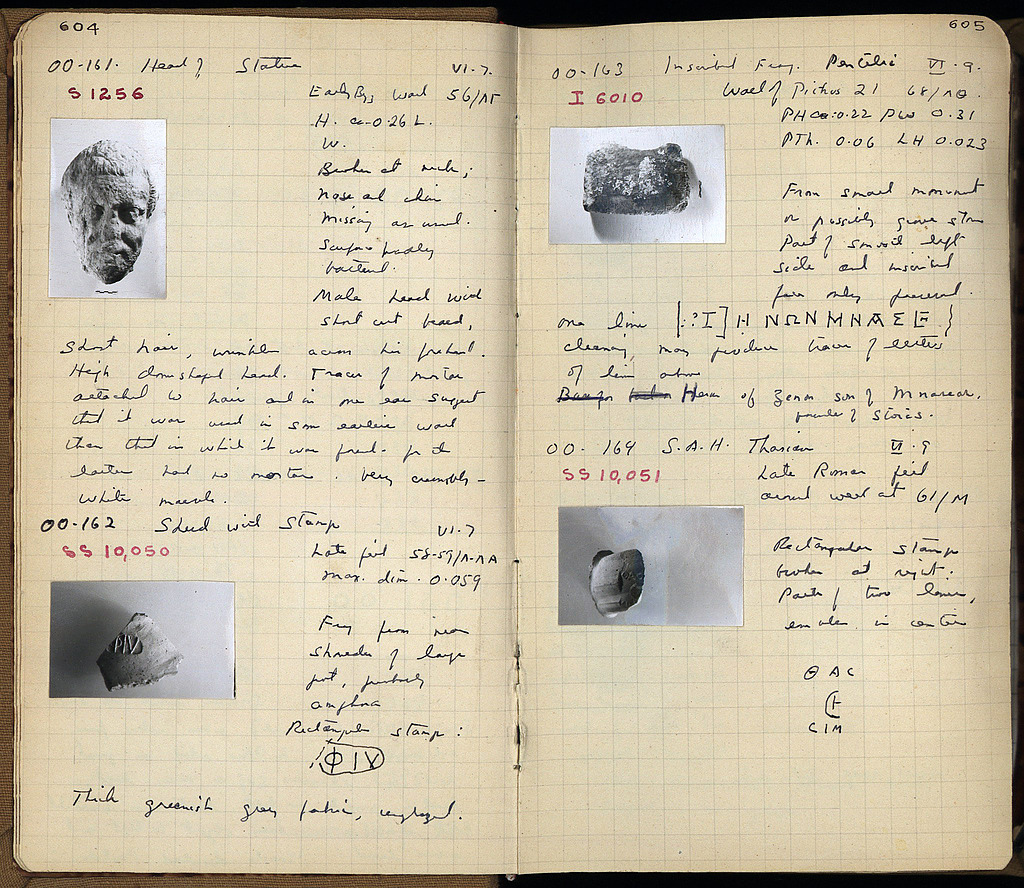 604
OO-161. Head of Statue VI-7.
S 1256
Early Byz wall 56/ΛΓ
H. ca-0.26 L.
W.
Broken at neck,
nose and chin
missing as usual.
Surface badly
battered.
Male head with
short cut beard,
short hair, wrinkles across his forehead.
High domeshaped head. Traces of mortar
attached to hair and in one ear suggest
that it was used in some earlier wall
than that in which it was found - for the
latter had no mortar. Very crumbly -
white marble.
OO-162 Sherd with Stamp VI-7
SS 10,050
Late fill 58-59/Λ-ΛΑ
Max. dim. 0.059
PIV
Frag from near
shoulder of large
pot, probably
amphora
Rectangular stamp:
ΦIV
Thick greenish gray fabric,
605
OO-163 Inscribed Frag. Pentelic VI-9.
I 6010
Wall of Pithos 21 68/ΛΘ.
PH ca. 0.22 PW 0.31
PTh. 0.06 LH 0.023
From small monument
or possibly grave stone
Part of smooth left
side and inscribed
face only preserved.
one line [:?I] H NΩN MNAΣE }
cleaning may produce traces of letters
of line above
Herm of Zenon son of Mnaseas,
founder of Stoics.
OO-164 S.A.H. Thasian VI-9
SS 10,051
Late Roman fill
around well at 61/M
Rectangular stamp
broken at right.
Parts of two lines,
emblem in center
Θ A C
C I M